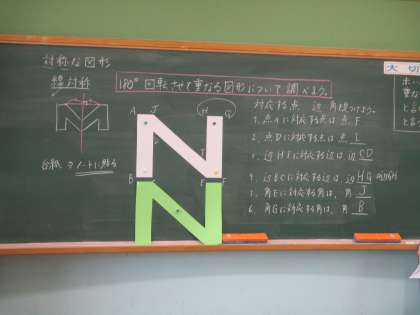 対称な図形
線対称
180°回転させて重なる図形について調べよう。
台紙 ノートに貼る
A J H G
B E F
対応する点 辺 角
1. 点Aに対応する点は点 F
2. 点Dに対応する点は、点 I
3. 辺HIに対応する辺は辺 CD
4. 辺BCに対応する辺は、辺 HG
5. 角Eに対応する角は、角 J
6. 角Gに対応する角は、角 B
大切